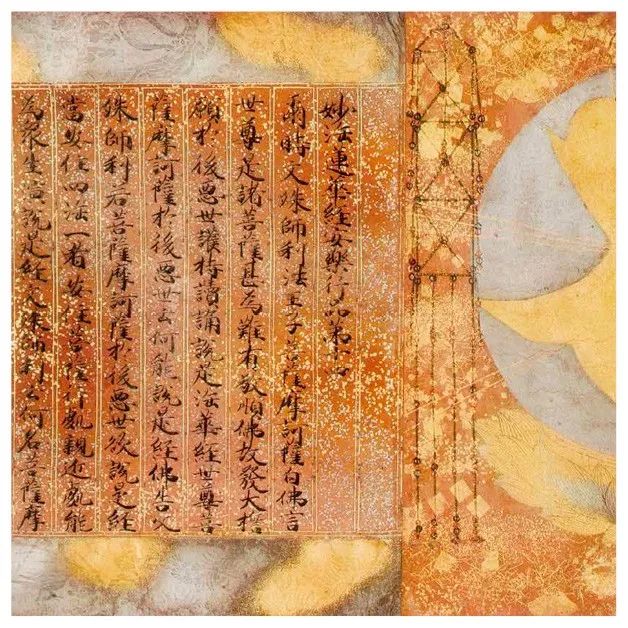 妙法蓮華經安樂行品第十四
爾時文殊師利法王子菩薩摩訶薩白佛言
世尊是諸菩薩甚為難有敬順佛故發大誓
願於後惡世護持讀誦說是法華經世尊菩
薩摩訶薩於後惡世云何能說是經佛告文
殊師利若菩薩摩訶薩於後惡世欲說是經
當安住四法一者安住菩薩行處親近處能
為眾生演說是經文殊師利云何名菩薩摩